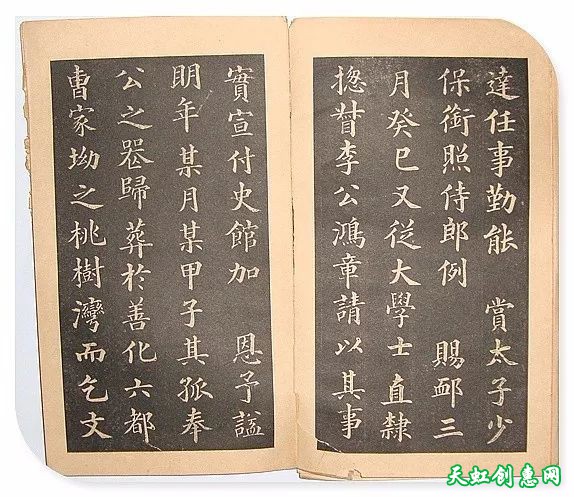 達任事勤能　賞太子少
保銜照侍郎例　賜卹三
月癸巳又從大學士直隸
揔督李公鴻章請以其事
實宣付史館加　恩予謚
明年某月某甲子其孤奉
公之器歸葬於善化六都
曹家坳之桃樹灣而乞文
天虹创意网